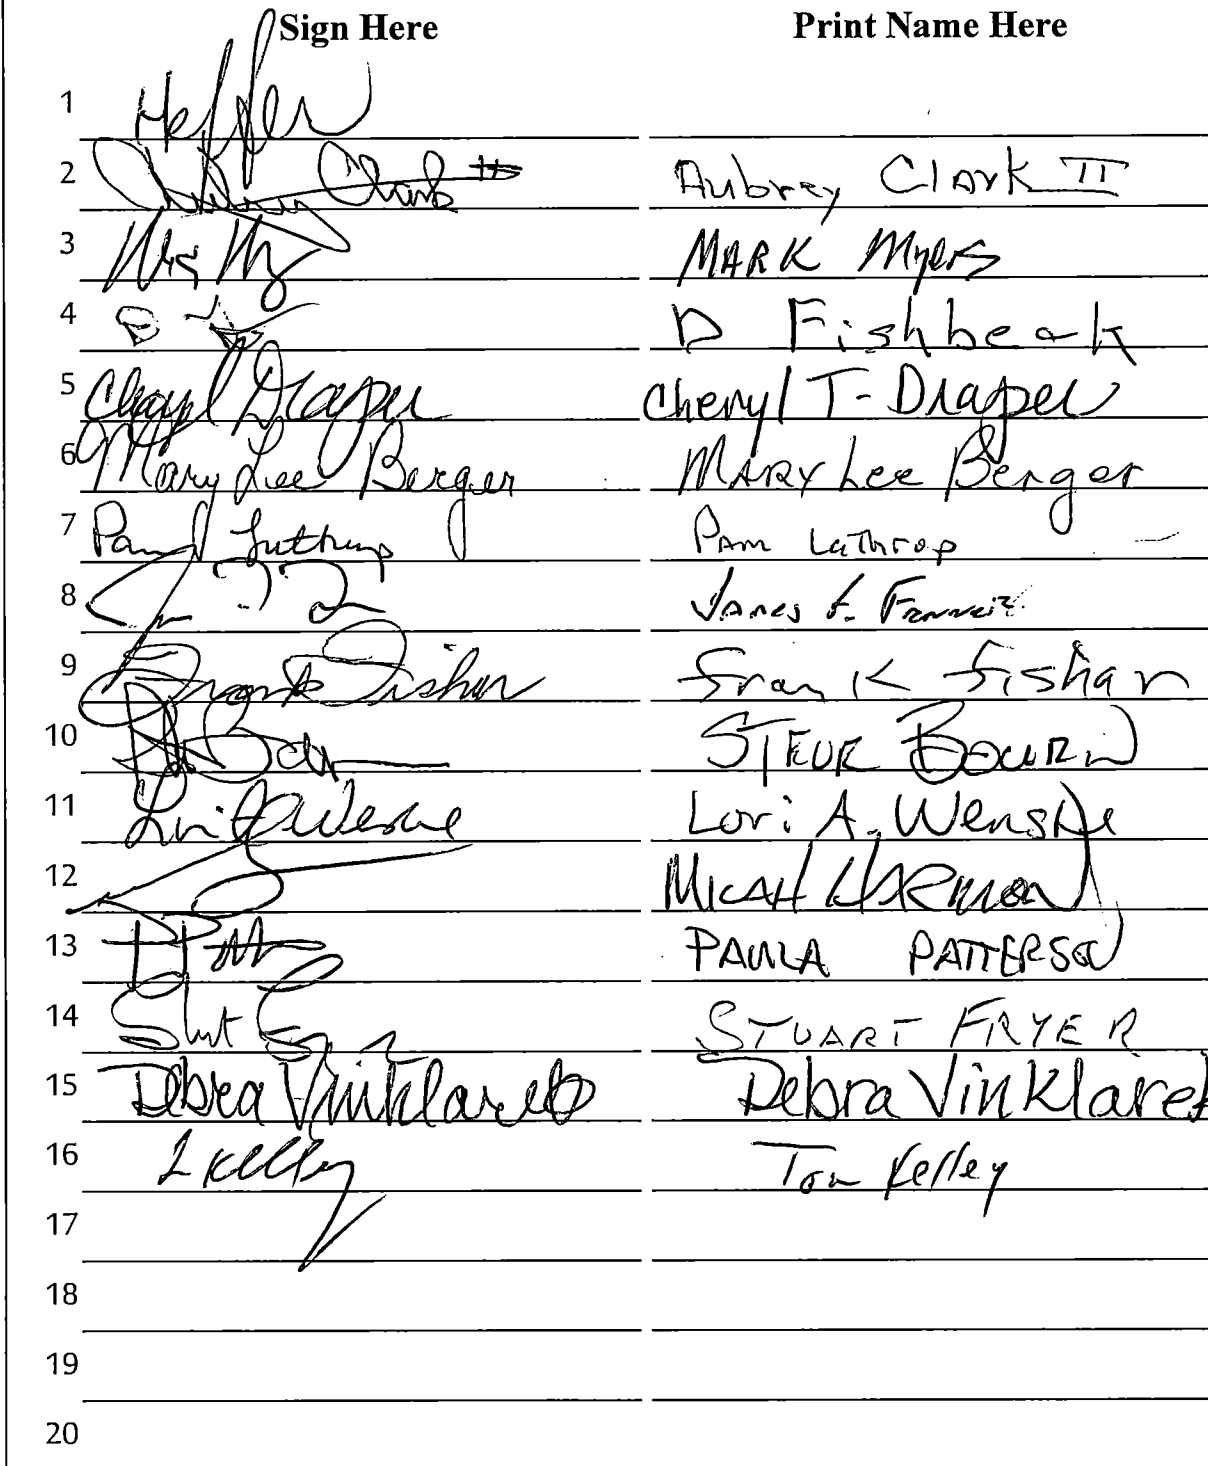 Sign Here Print Name Here
1 Heffer
2 Aubrey Clark II Aubrey Clark II
3 MARK Myers
4 D Fishbeck
5 Cheryl Draper Cheryl T. Draper
6 Mary Lee Berger MARY Lee Berger
7 Pam Lathrop Pam Lathrop
8 James F.
9 Frank Fisher Frank Fisher
10 STEVE BOURN
11 Lori A. Wenske
12 MICAH HARMON
13 PAULA PATTERSON
14 STUART FRYER
15 Debra Vinklarek Debra Vinklarek
16 T Kelley Tom Kelley
17
18
19
20